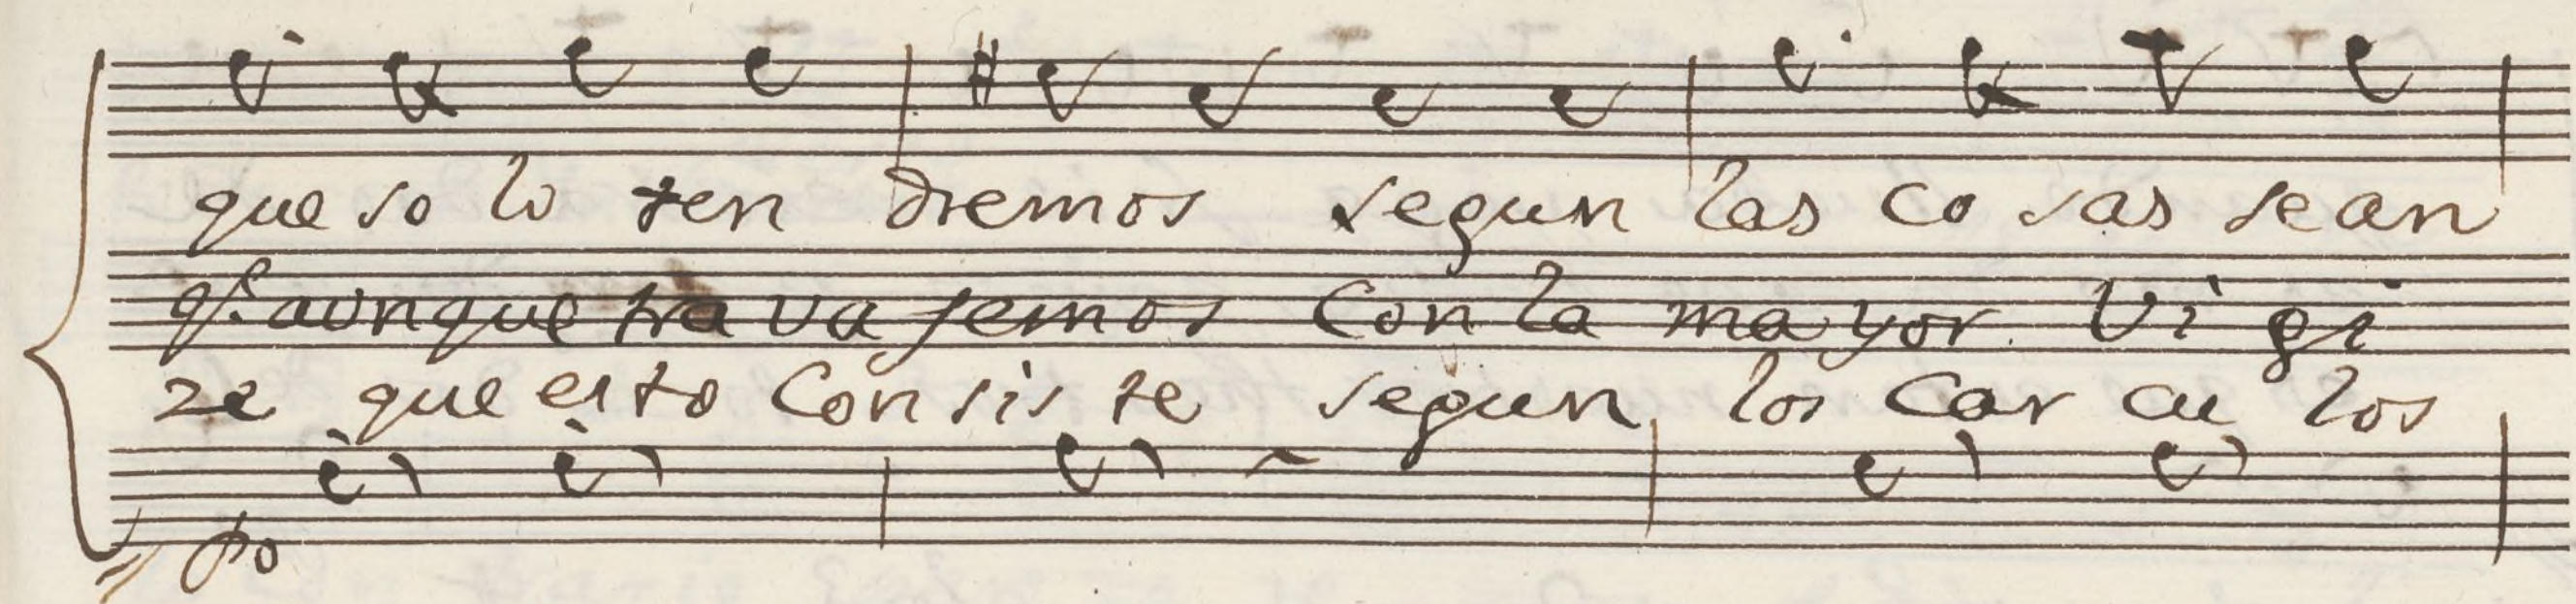 que so lo ten dremos segun las co sas sean
qe. aunque tra va jemos Con la mayor Vi gi
ze que esto Con sis te segun los Car cu los
po